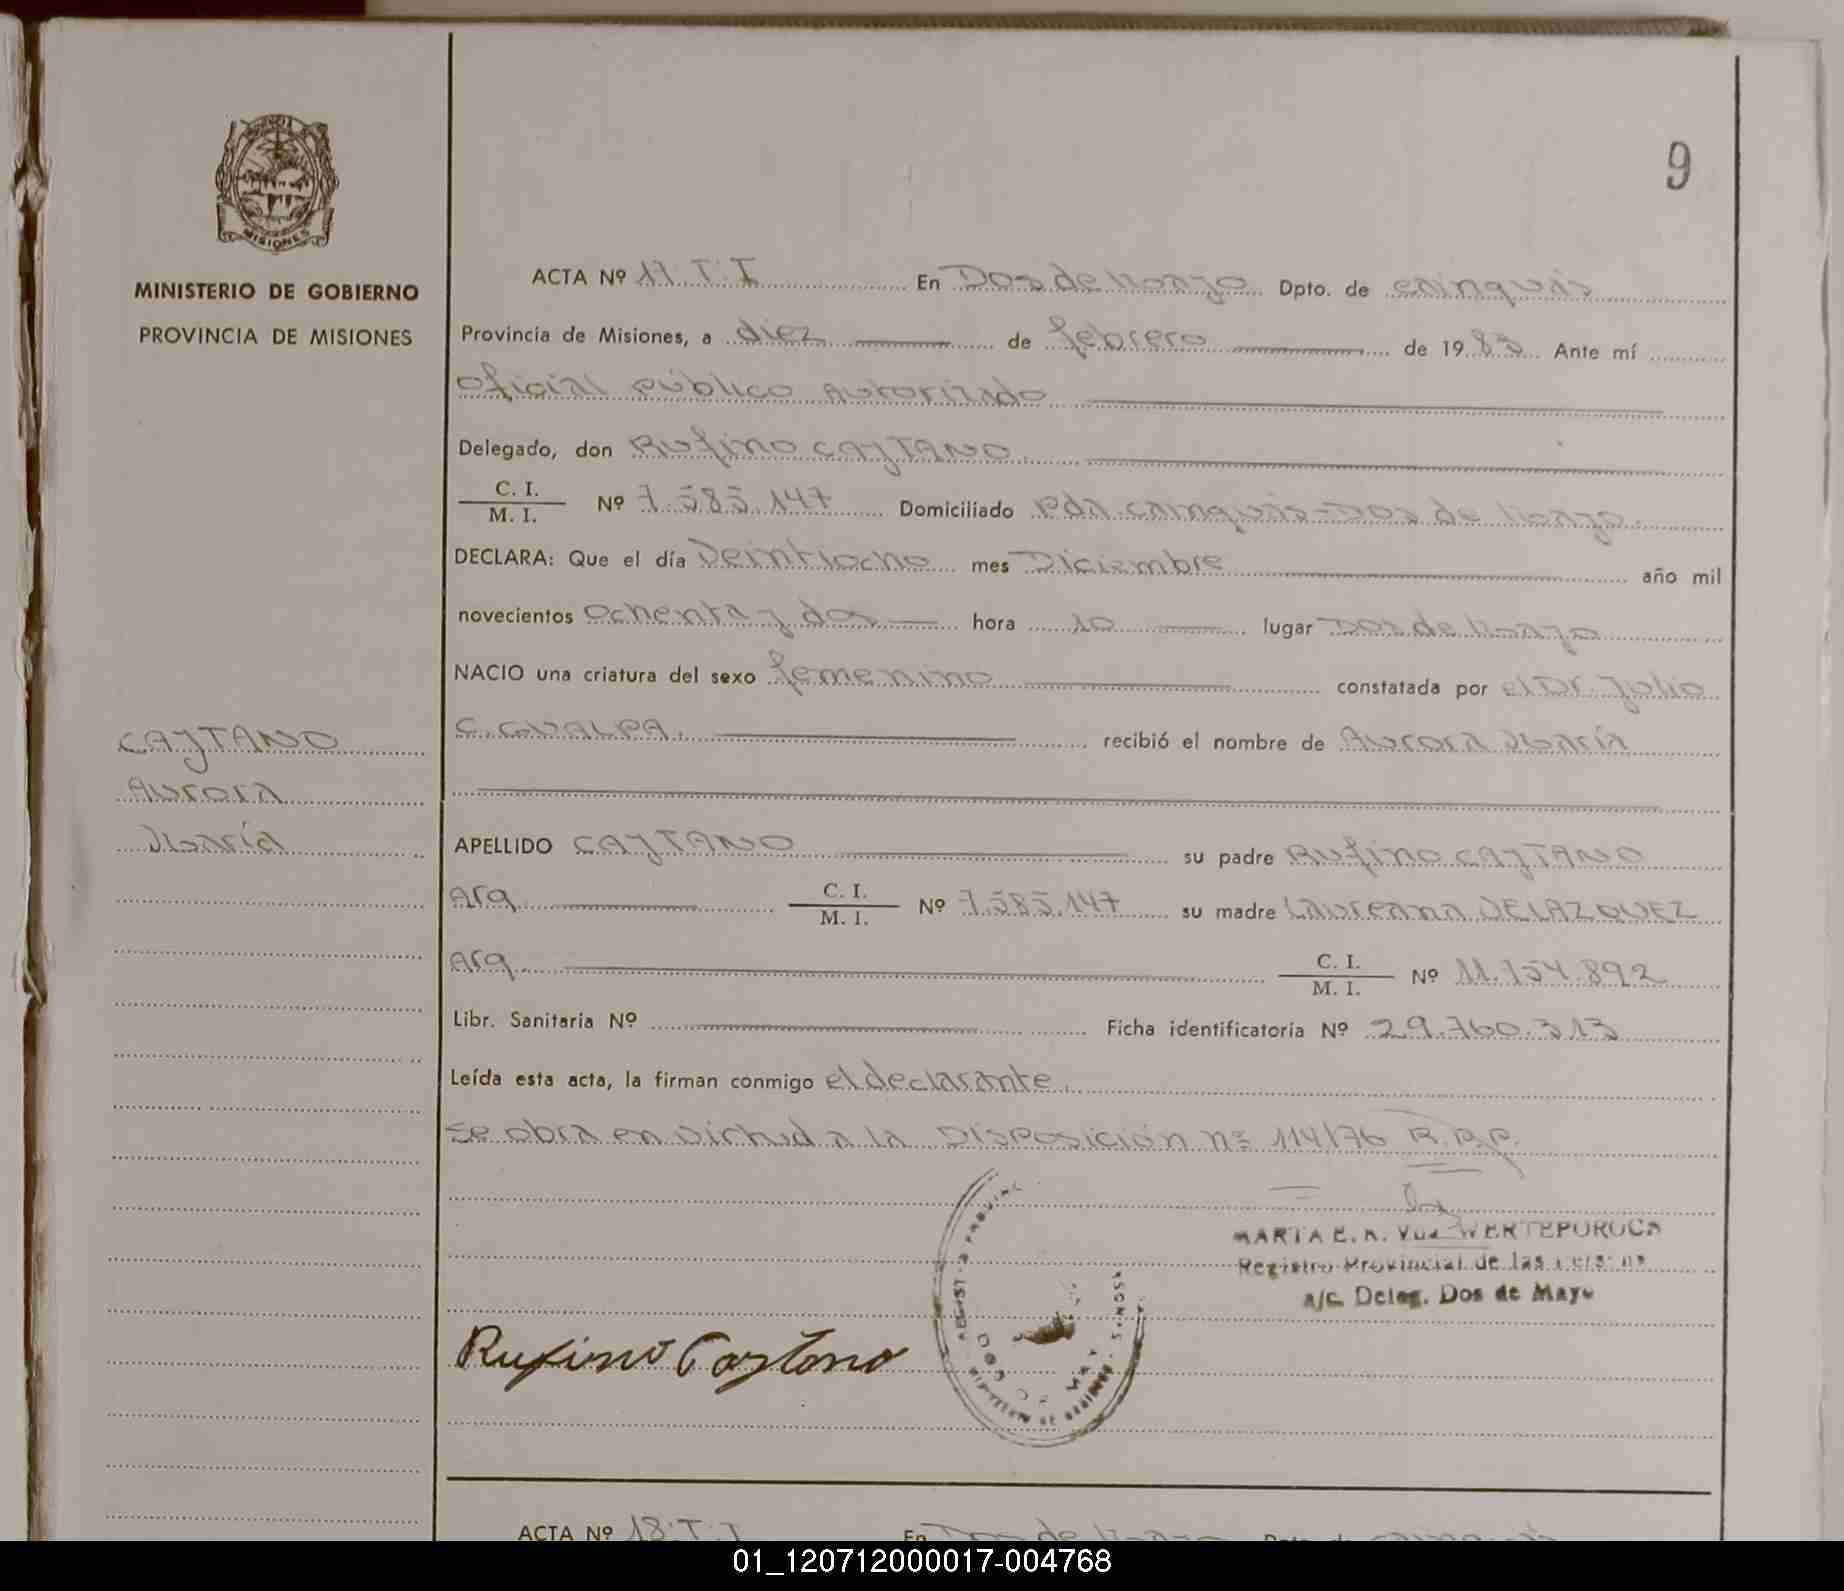 9
MISIONES
MINISTERIO DE GOBIERNO
PROVINCIA DE MISIONES
ACTA Nº 17. T. I En Dos de Mayo Dpto. de Cainguás
Provincia de Misiones, a diez de febrero de 1983 Ante mí
Oficial público autorizado
Delegado, don Rufino CAYTANO.
C. I.
M. I. Nº 7.585.147 Domiciliado Pda. Cainguás-Dos de Mayo.
DECLARA: Que el día Veintiocho mes Diciembre año mil
novecientos ochenta y dos hora 10 lugar Dos de Mayo
NACIO una criatura del sexo femenino constatada por el Dr. Julio
C. GUALPA. recibió el nombre de Aurora María
CAYTANO
Aurora
María
APELLIDO CAYTANO su padre Rufino CAYTANO
Arg C. I.
M. I. Nº 7.585.147 su madre Laureana VELAZQUEZ
Arg C. I.
M. I. Nº 11.154.892
Libr. Sanitaria Nº Ficha identificatoria Nº 29.760.313
Leída esta acta, la firman conmigo el declarante.
Se obra en virtud a la Disposición nº 114/76 R.P.P.
MARTA E. K. Vda WERTEPOROCA
Registro Provincial de las
a/c. Deleg. Dos de Mayo
Rufino Caytano
ACTA Nº 18. T. I En Dos de Mayo
01_120712000017-004768